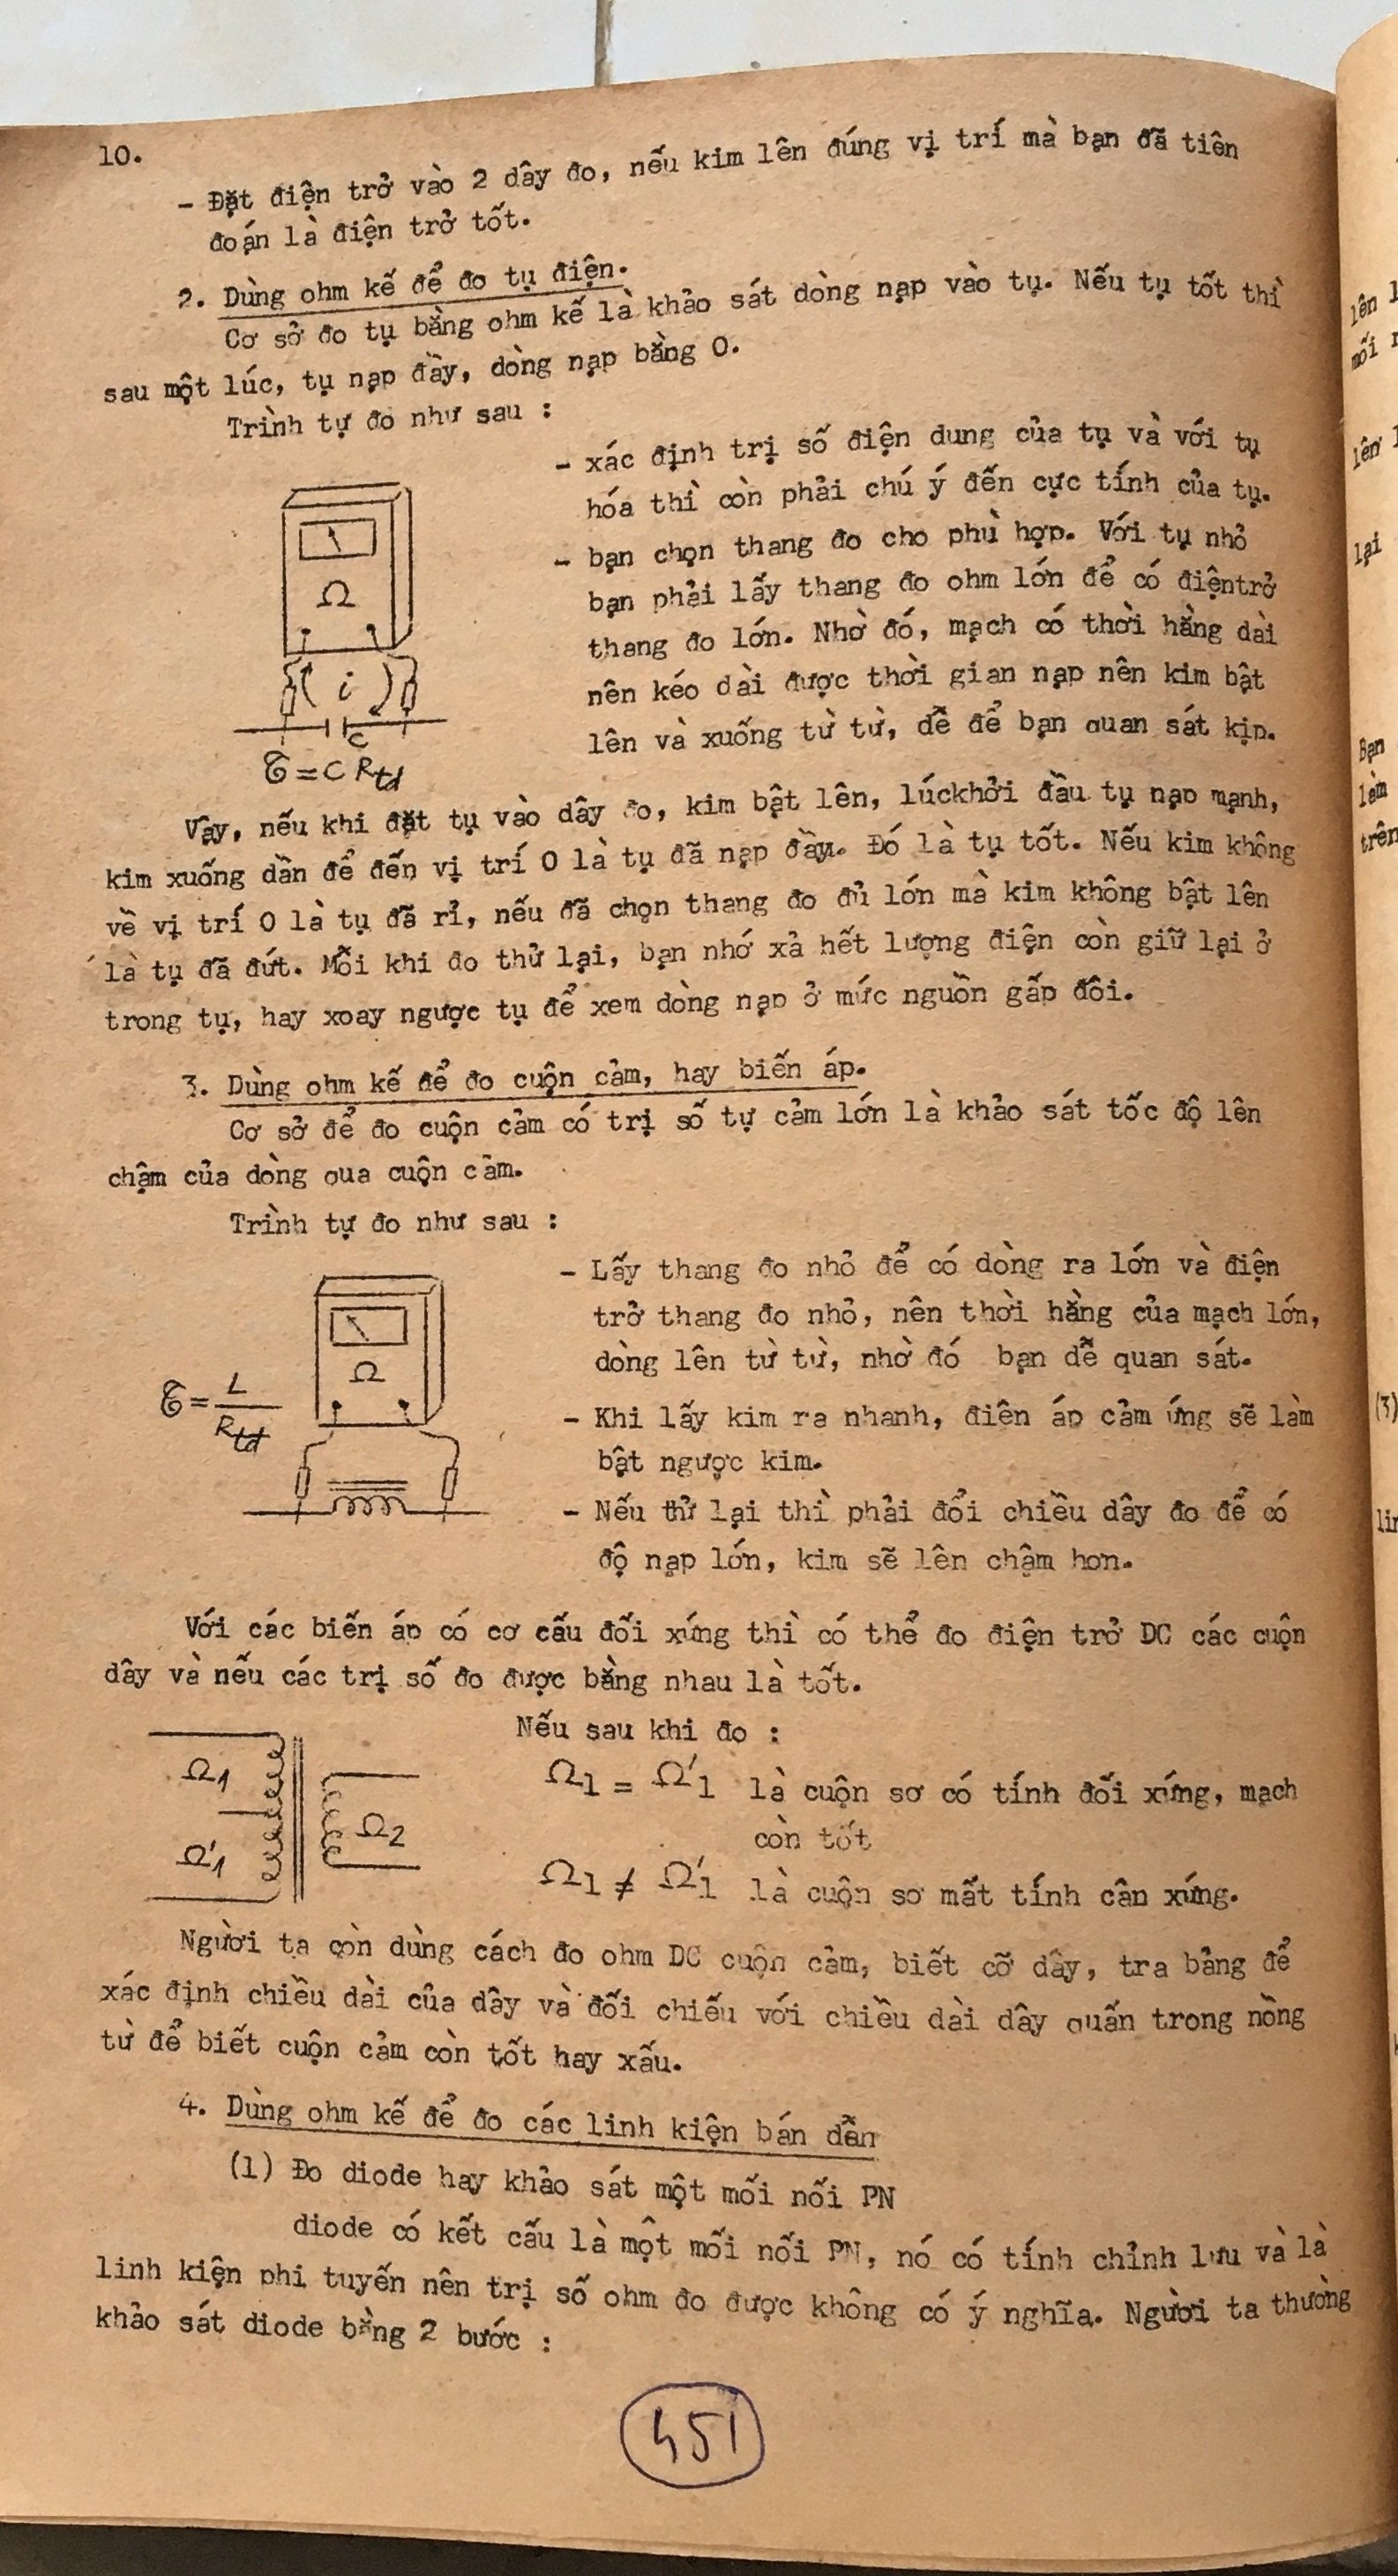 10.
- Đặt điện trở vào 2 dây đo, nếu kim lên đúng vị trí mà bạn đã tiên
đoán là điện trở tốt.
2. Dùng ohm kế để đo tụ điện.
Cơ sở đo tụ bằng ohm kế là khảo sát dòng nạp vào tụ. Nếu tụ tốt thì
sau một lúc, tụ nạp đầy, dòng nạp bằng 0.
Trình tự đo như sau :
- xác định trị số điện dung của tụ và với tụ
hóa thì còn phải chú ý đến cực tính của tụ.
- bạn chọn thang đo cho phù hợp. Với tụ nhỏ
bạn phải lấy thang đo ohm lớn để có điệntrở
thang đo lớn. Nhờ đó, mạch có thời hằng dài
nên kéo dài được thời gian nạp nên kim bật
lên và xuống từ từ, dễ để bạn quan sát kịp.
Ω
i
C
τ = C Rtd
Vậy, nếu khi đặt tụ vào dây đo, kim bật lên, lúckhởi đầu tụ nạp mạnh,
kim xuống dần để đến vị trí 0 là tụ đã nạp đầy. Đó là tụ tốt. Nếu kim không
về vị trí 0 là tụ đã rỉ, nếu đã chọn thang đo đủ lớn mà kim không bật lên
là tụ đã đứt. Mỗi khi đo thử lại, bạn nhớ xả hết lượng điện còn giữ lại ở
trong tụ, hay xoay ngược tụ để xem dòng nạp ở mức nguồn gấp đôi.
3. Dùng ohm kế để đo cuộn cảm, hay biến áp.
Cơ sở để đo cuộn cảm có trị số tự cảm lớn là khảo sát tốc độ lên
chậm của dòng qua cuộn cảm.
Trình tự đo như sau :
- Lấy thang đo nhỏ để có dòng ra lớn và điện
trở thang đo nhỏ, nên thời hằng của mạch lớn,
dòng lên từ từ, nhờ đó bạn dễ quan sát.
- Khi lấy kim ra nhanh, điên áp cảm ứng sẽ làm
bật ngược kim.
- Nếu thử lại thì phải đổi chiều dây đo để có
độ nạp lớn, kim sẽ lên chậm hơn.
Ω
τ = L / Rtd
Với các biến áp có cơ cấu đối xứng thì có thể đo điện trở DC các cuộn
dây và nếu các trị số đo được bằng nhau là tốt.
Nếu sau khi đo :
Ω1 = Ω'1 là cuộn sơ có tính đối xứng, mạch
còn tốt
Ω1 ≠ Ω'1 là cuộn sơ mất tính cân xứng.
Ω1
Ω'1
Ω2
Người ta còn dùng cách đo ohm DC cuộn cảm, biết cỡ dây, tra bảng để
xác định chiều dài của dây và đối chiếu với chiều dài dây quấn trong nồng
từ để biết cuộn cảm còn tốt hay xấu.
4. Dùng ohm kế để đo các linh kiện bán dẫn
(1) Đo diode hay khảo sát một mối nối PN
diode có kết cấu là một mối nối PN, nó có tính chỉnh lưu và là
linh kiện phi tuyến nên trị số ohm đo được không có ý nghĩa. Người ta thường
khảo sát diode bằng 2 bước :
451
lên
mối
lên
lại
Bạn
làm
trên
(3)